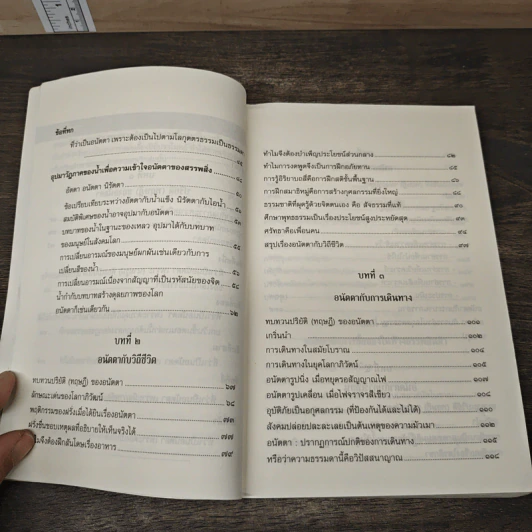 ข้อที่พก
ที่ว่าเป็นอนัตตา เพราะต้องเป็นไปตามโลกุตตรธรรมเป็นธรรมดา
อุปมาวัฏภาคของน้ำเพื่อความเข้าใจอนัตตาของสรรพสิ่ง
อัตตา อนัตตา นิรัตตา
ข้อเปรียบเทียบระหว่างอัตตากับน้ำแข็ง นิรัตตากับไอน้ำ
สมบัติพิเศษของน้ำอาจอุปมากับอนัตตา
บทบาทของน้ำในฐานะของเหลว อุปมาได้กับบทบาท
ของมนุษย์ในสังคมโลก
การเปลี่ยนอารมณ์ของมนุษย์ผกผันเช่นเดียวกับการ
เปลี่ยนสีของน้ำ
การเปลี่ยนอารมณ์เนื่องจากสัญญาที่เป็นรหัสนัยของจิต
น้ำกำกับบทบาทสร้างดุลยภาพของโลก
อนัตตาก็เช่นเดียวกัน ๖๒
บทที่ ๒
อนัตตากับวิถีชีวิต
ทบทวนปริยัติ (ทฤษฎี) ของอนัตตา ๖๗
ลักษณะเด่นของโลกาภิวัตน์ ๖๙
พฤติกรรมของฝรั่งเมื่อได้ยินเรื่องอนัตตา ๗๓
ฝรั่งชื่นชอบเหตุผลที่อธิบายให้เห็นจริงได้ ๗๗
ทำไมจึงต้องฝึกสันโดษเรื่องอาหาร ๗๙
ทำไมจึงต้องบำเพ็ญประโยชน์ส่วนกลาง ๘๒
ทำไมการงดพูดจึงเป็นการฝึกอภัยทาน ๘๕
การรู้อิริยาบถสี่คือการฝึกสติขั้นพื้นฐาน
การฝึกสมาธิหมู่คือการสร้างกุศลกรรมที่ยิ่งใหญ่
ธรรมชาติที่ผุดรู้ด้วยจิตตนเอง คือ สัจธรรมที่แท้
ศึกษาพุทธธรรมเป็นเรื่องประโยชน์สูงประหยัดสุด ๙๓
ศรัทธาคือเพื่อนคน
สรุปเรื่องอนัตตากับวิถีชีวิต ๙๗
บทที่ ๓
อนัตตากับการเดินทาง
ทบทวนปริยัติ (ทฤษฎี) ของอนัตตา ๑๐๑
เกริ่นนำ ๑๐๒
การเดินทางในสมัยโบราณ ๑๐๔
การเดินทางในยุคโลกาภิวัตน์ ๑๐๕
อนัตตารูปนิ่ง เมื่อหยุดรอสัญญาณไฟ ๑๐๗
อนัตตารูปเคลื่อน เมื่อไฟจราจรสีเขียว
อุบัติภัยเป็นอกุศลกรรม (ที่ป้องกันได้และไม่ได้) ๑๑๐
สังคมปล่อยปละละเลยเป็นต้นเหตุของความมัวเมา
อนัตตา : ปรากฏการณ์ปกติของการเดินทาง ๑๑๕
หรือว่าความธรรมดานี้คือวิปัสสนาญาณ